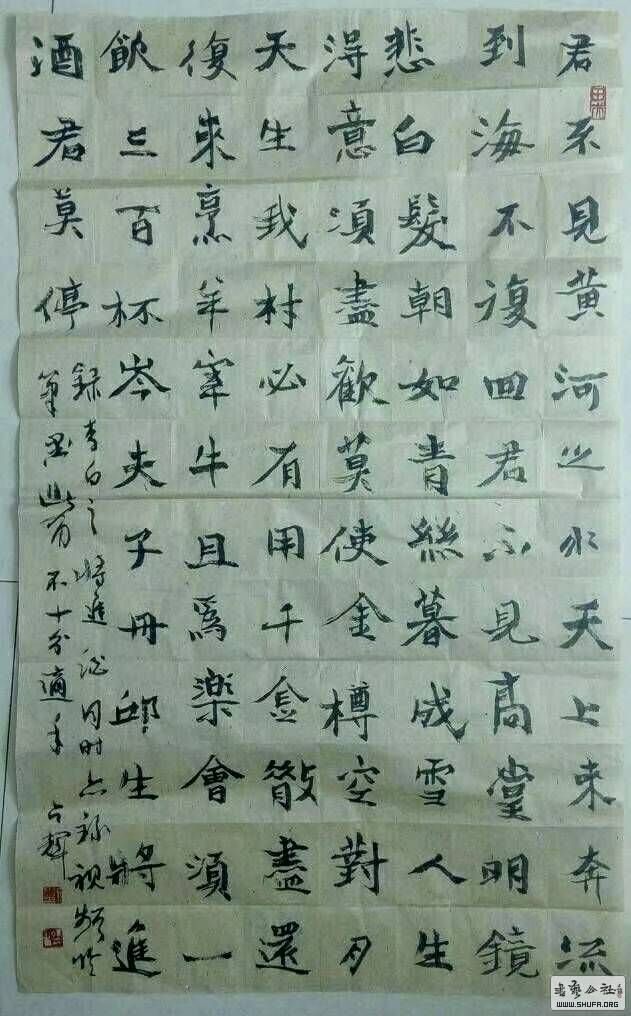 君不見黄河之水天上来奔流
到海不復回君不見高堂明鏡
悲白髮朝如青絲暮成雪人生
得意須盡歡莫使金樽空對月
天生我材必有用千金散盡還
復来烹羊宰牛且爲樂會須一
飲三百杯岑夫子丹邱生將進
酒君莫停
録李白之將進酒同時亦録視频
筆墨皆不十分適手
书艺公社
WWW.SHUFA.ORG